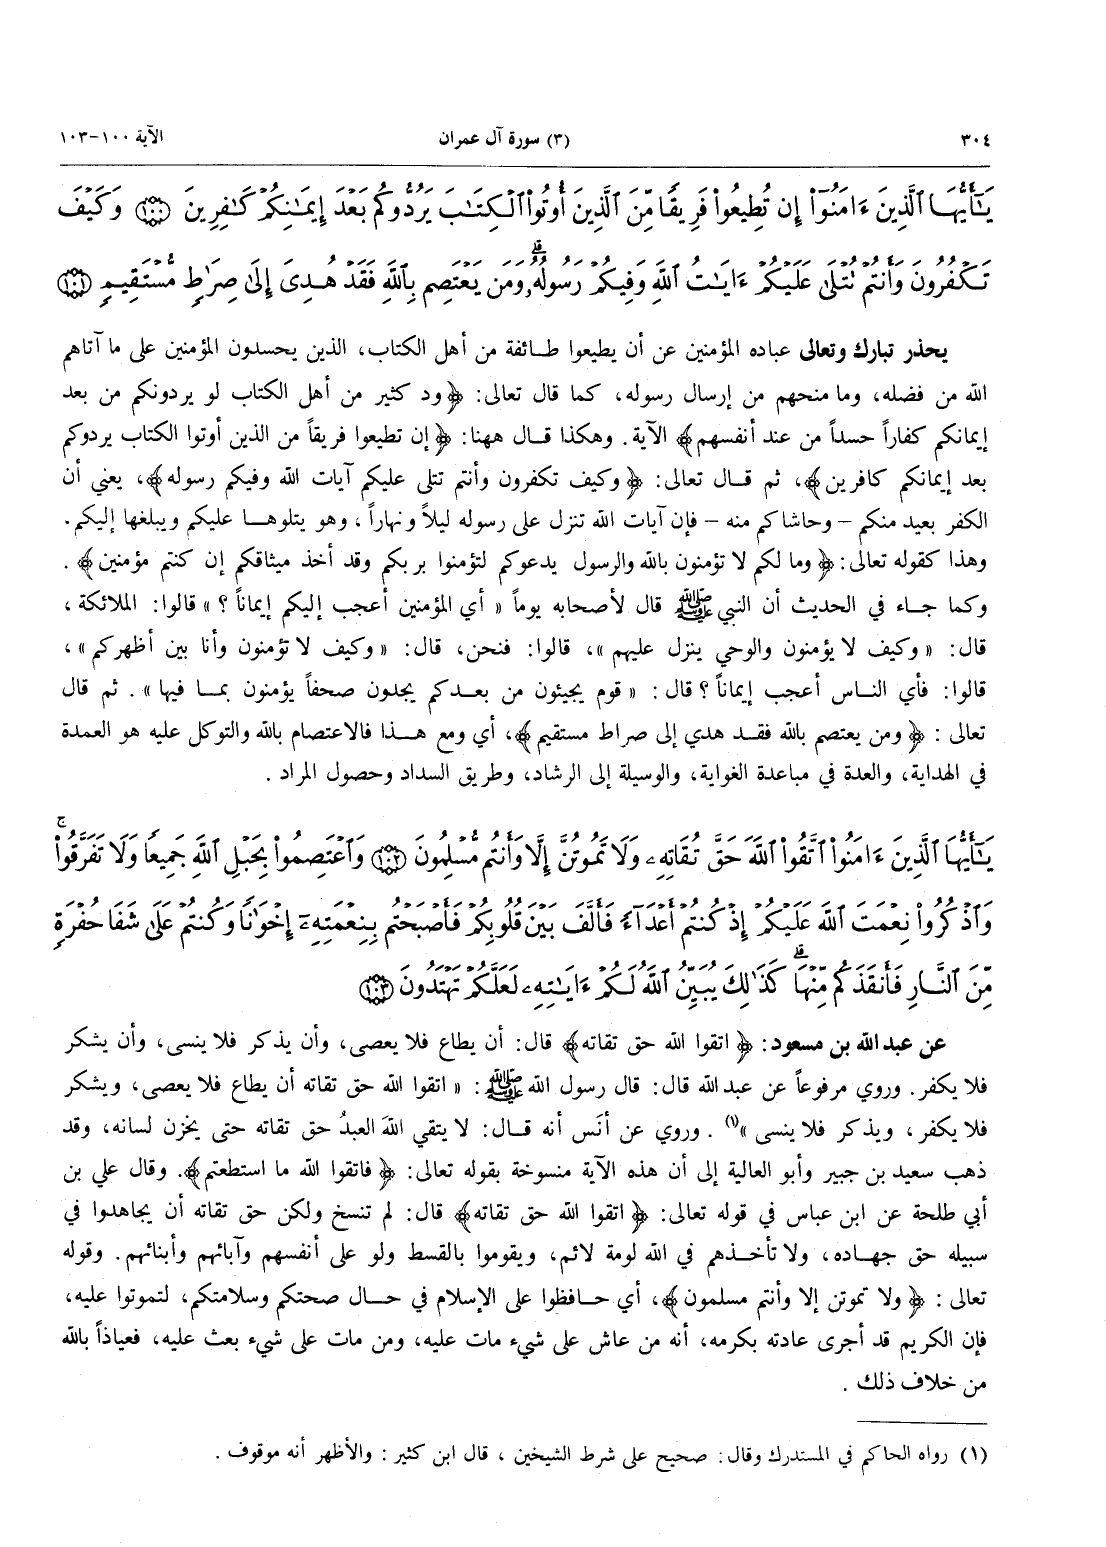 ٣٠٤ (٣) سورة آل عمران الآية ١٠٠-١٠٣
يَٰٓأَيُّهَا ٱلَّذِينَ ءَامَنُوٓا۟ إِن تُطِيعُوا۟ فَرِيقًا مِّنَ ٱلَّذِينَ أُوتُوا۟ ٱلْكِتَٰبَ يَرُدُّوكُم بَعْدَ إِيمَٰنِكُمْ كَٰفِرِينَ ١٠٠ وَكَيْفَ
تَكْفُرُونَ وَأَنتُمْ تُتْلَىٰ عَلَيْكُمْ ءَايَٰتُ ٱللَّهِ وَفِيكُمْ رَسُولُهُۥ ۗ وَمَن يَعْتَصِم بِٱللَّهِ فَقَدْ هُدِىَ إِلَىٰ صِرَٰطٍ مُّسْتَقِيمٍ ١٠١
يحذر تبارك وتعالى عباده المؤمنين عن أن يطيعوا طائفة من أهل الكتاب، الذين يحسدون المؤمنين على ما آتاهم
الله من فضله، وما منحهم من إرسال رسوله، كما قال تعالى: ﴿ود كثير من أهل الكتاب لو يردونكم من بعد
إيمانكم كفاراً حسداً من عند أنفسهم﴾ الآية. وهكذا قال ههنا: ﴿إن تطيعوا فريقاً من الذين أوتوا الكتاب يردوكم
بعد إيمانكم كافرين﴾، ثم قال تعالى: ﴿وكيف تكفرون وأنتم تتلى عليكم آيات الله وفيكم رسوله﴾، يعني أن
الكفر بعيد منكم – وحاشاكم منه – فإن آيات الله تنزل على رسوله ليلاً ونهاراً، وهو يتلوها عليكم ويبلغها إليكم.
وهذا كقوله تعالى: ﴿وما لكم لا تؤمنون بالله والرسول يدعوكم لتؤمنوا بربكم وقد أخذ ميثاقكم إن كنتم مؤمنين﴾.
وكما جاء في الحديث أن النبي ﷺ قال لأصحابه يوماً « أي المؤمنين أعجب إليكم إيماناً ؟ » قالوا: الملائكة،
قال: « وكيف لا يؤمنون والوحي ينزل عليهم »، قالوا: فنحن، قال: « وكيف لا تؤمنون وأنا بين أظهركم »،
قالوا: فأي الناس أعجب إيماناً ؟ قال: « قوم يجيئون من بعدكم يجدون صحفاً يؤمنون بما فيها ». ثم قال
تعالى: ﴿ومن يعتصم بالله فقد هدي إلى صراط مستقيم﴾، أي ومع هذا فالاعتصام بالله والتوكل عليه هو العمدة
في الهداية، والعدة في مباعدة الغواية، والوسيلة إلى الرشاد، وطريق السداد وحصول المراد.
يَٰٓأَيُّهَا ٱلَّذِينَ ءَامَنُوا۟ ٱتَّقُوا۟ ٱللَّهَ حَقَّ تُقَاتِهِۦ وَلَا تَمُوتُنَّ إِلَّا وَأَنتُم مُّسْلِمُونَ ١٠٢ وَٱعْتَصِمُوا۟ بِحَبْلِ ٱللَّهِ جَمِيعًا وَلَا تَفَرَّقُوا۟ ۚ
وَٱذْكُرُوا۟ نِعْمَتَ ٱللَّهِ عَلَيْكُمْ إِذْ كُنتُمْ أَعْدَآءً فَأَلَّفَ بَيْنَ قُلُوبِكُمْ فَأَصْبَحْتُم بِنِعْمَتِهِۦٓ إِخْوَٰنًا وَكُنتُمْ عَلَىٰ شَفَا حُفْرَةٍ
مِّنَ ٱلنَّارِ فَأَنقَذَكُم مِّنْهَا ۗ كَذَٰلِكَ يُبَيِّنُ ٱللَّهُ لَكُمْ ءَايَٰتِهِۦ لَعَلَّكُمْ تَهْتَدُونَ ١٠٣
عن عبد الله بن مسعود: ﴿اتقوا الله حق تقاته﴾ قال: أن يطاع فلا يعصى، وأن يذكر فلا ينسى، وأن يشكر
فلا يكفر. وروي مرفوعاً عن عبد الله قال: قال رسول الله ﷺ: « اتقوا الله حق تقاته أن يطاع فلا يعصى، ويشكر
فلا يكفر، ويذكر فلا ينسى »(١). وروي عن أنَس أنه قال: لا يتقي اللهَ العبدُ حق تقاته حتى يخزن لسانه، وقد
ذهب سعيد بن جبير وأبو العالية إلى أن هذه الآية منسوخة بقوله تعالى: ﴿فاتقوا الله ما استطعتم﴾. وقال علي بن
أبي طلحة عن ابن عباس في قوله تعالى: ﴿اتقوا الله حق تقاته﴾ قال: لم تنسخ ولكن حق تقاته أن يجاهدوا في
سبيله حق جهاده، ولا تأخذهم في الله لومة لائم، ويقوموا بالقسط ولو على أنفسهم وآبائهم وأبنائهم. وقوله
تعالى: ﴿ولا تموتن إلا وأنتم مسلمون﴾، أي حافظوا على الإسلام في حال صحتكم وسلامتكم، لتموتوا عليه،
فإن الكريم قد أجرى عادته بكرمه، أنه من عاش على شيء مات عليه، ومن مات على شيء بعث عليه، فعياذاً بالله
من خلاف ذلك.
(١) رواه الحاكم في المستدرك وقال: صحيح على شرط الشيخين، قال ابن كثير: والأظهر أنه موقوف.